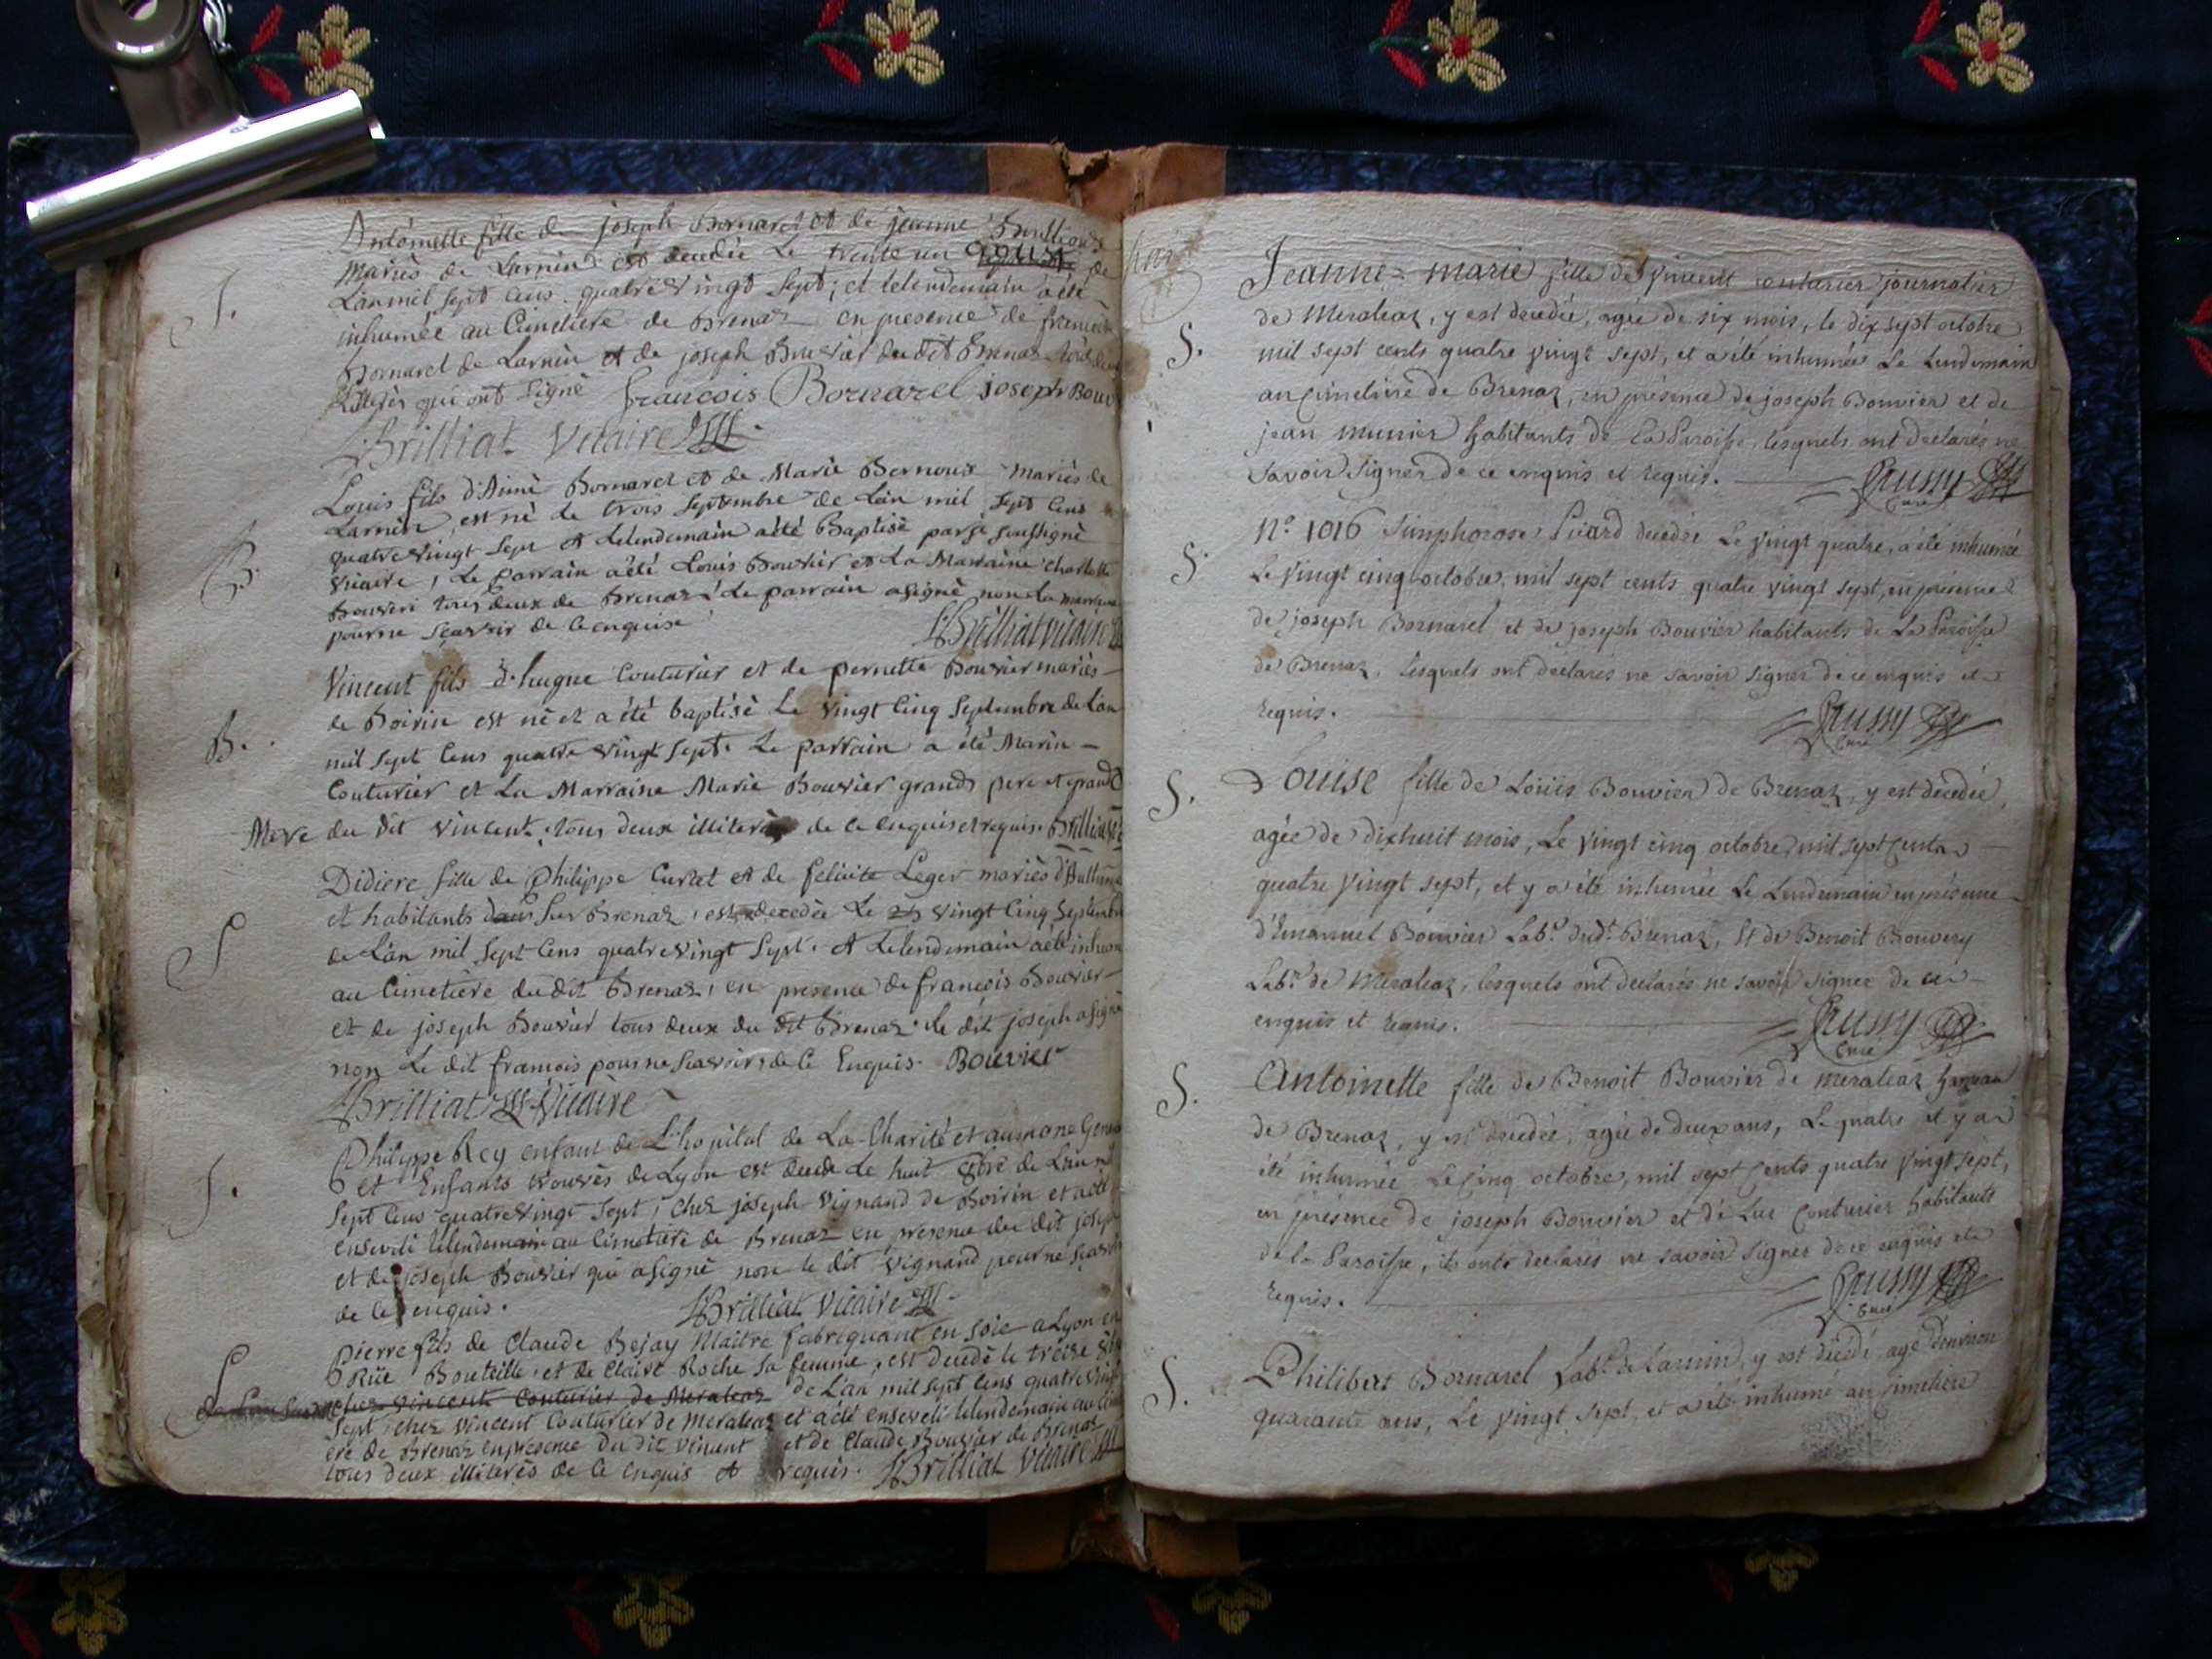 Antoinette fille de joseph Bornarel et de jeanne
Mariés de Larnin est decedée Le trente un aoust de
L'an mil sept cens quatre vingt sept, et lelendemain a été
inhumée au Cimetiere de Brenaz en presence de francois
Bornarel de Larnin et de joseph Bouvier du dit Brenaz
qui ont signé francois Bornarel joseph Bouv
Brilliat Vicaire
S.
Louis fils d'Aimé Bornarel et de Marie Bernoux mariés de
Larnin, est né le trois Septembre de L'an mil sept Cens
quatre vingt sept et Lelendemain a été Baptisé par je soussigné
Vicaire, Le parrain a été Louis Bouvier et La Marraine charlotte
Bouveri tous deux de Brenaz. Le parrain a signé non La marraine
pour ne sçavoir de ce enquise
Brilliat vicaire
B.
Vincent fils d'hugue Couturier et de pernette Bouvier mariés
de Boirin est né et a été baptisé Le Vingt Cinq Septembre de L'an
mil sept Cens quatre vingt sept. Le parrain a été Marin
B.
Couturier et La Marraine Marie Bouvier grands pere et grand
Mere du dit Vincent, tous deux illiterés de ce enquis et requis. Brilliat
Didiere fille de Philippe Curtet et de felicite Leger mariés
et habitants Sur Brenaz, est decedée Le vingt Cinq Septembre
de L'an mil sept Cens quatre vingt sept. et Lelendemain a été inhum
S
au Cimetiere du dit Brenaz, en presence de francois Bouvier
et de joseph Bouvier tous deux du dit Brenaz. le dit joseph a signé
non Le dit francois pour ne scavoir, de ce Enquis. Bouvier
Brilliat Vicaire
Philippe Rey enfant de L'hopital de La Charité et aumone Gen
et Enfants trouvés de Lyon est decedé Le huit 8bre de L'an mil
S.
Sept Cens quatre vingt Sept, chez joseph Vignand de Boirin et a été
enseveli lelendemain au Cimetiere de Brenaz en presence du dit joseph
et de joseph Bouvier qui a signé non le dit Vignand pour ne scavoir
de ce enquis.
Brilliat Vicaire
pierre fils de Claude Bejay Maitre fabriquant en soie a Lyon en
Rüe Bouteille et de Claire Roche sa femme, est decedé le treize 8bre
S
chez vincent Couturier de Meraleaz de L'an mil sept Cens quatre vingt
Sept, chez Vincent Couturier de Meraleaz et a été enseveli lelendemain au Cimeti
ere de Brenaz en presence du dit Vincent et de Claude Bouvier de Brenaz
tous deux illiterés de ce enquis et requis. Brilliat Vicaire
huit
Jeanne=marie fille de Vincent couturier journalier
de Meraleaz, y est decedée, agée de six mois, le dix sept octobre
S.
mil sept cents quatre vingt sept, et a été inhumée Le Lendemain
au Cimetiere de Brenaz, en présence de joseph Bouvier et de
jean munier habitants de La Paroisse, lesquels ont declarés ne
savoir signer de ce enquis et requis. Crussy
Curé
N.º 1016 Simphorose Picard decedée Le vingt quatre, a été inhumée
S.
Le vingt cinq octobre, mil sept cents quatre vingt sept, en présence
de joseph Bornarel et de joseph Bouvier habitants de La Paroisse
de Brenaz, Lesquels ont declarés ne savoir signer de ce enquis et
requis. Crussy
Curé
S.
Louise fille de Loüis Bouvier de Brenaz, y est decedée,
agée de dixhuit mois, Le vingt cinq octobre mil sept cents
quatre vingt sept, et y a été inhumée Le Lendemain en présence
d'Emanuel Bouvier Lab.r dud.t Brenaz, Et de Benoit Bouvery
Lab.r de Meraleaz, lesquels ont declarés ne savoir signer de ce
enquis et requis. Crussy
Curé
S.
Antoinette fille de Benoit Bouvier de meraleaz hameau
de Brenaz, y est decedée, agée de deux ans, Le quatre et y a
été inhumée Le Cinq octobre, mil sept Cents quatre vingt sept,
en présence de joseph Bouvier et de Luc Couturier habitants
de la Paroisse, ils onts declarés ne savoir signer de ce enquis et
requis. Crussy
Curé
S.
Philibert Bornarel Lab.r de Larnin, y est decedé, agé d'environ
quarante ans, Le vingt sept, et a été inhumé au Cimetiere